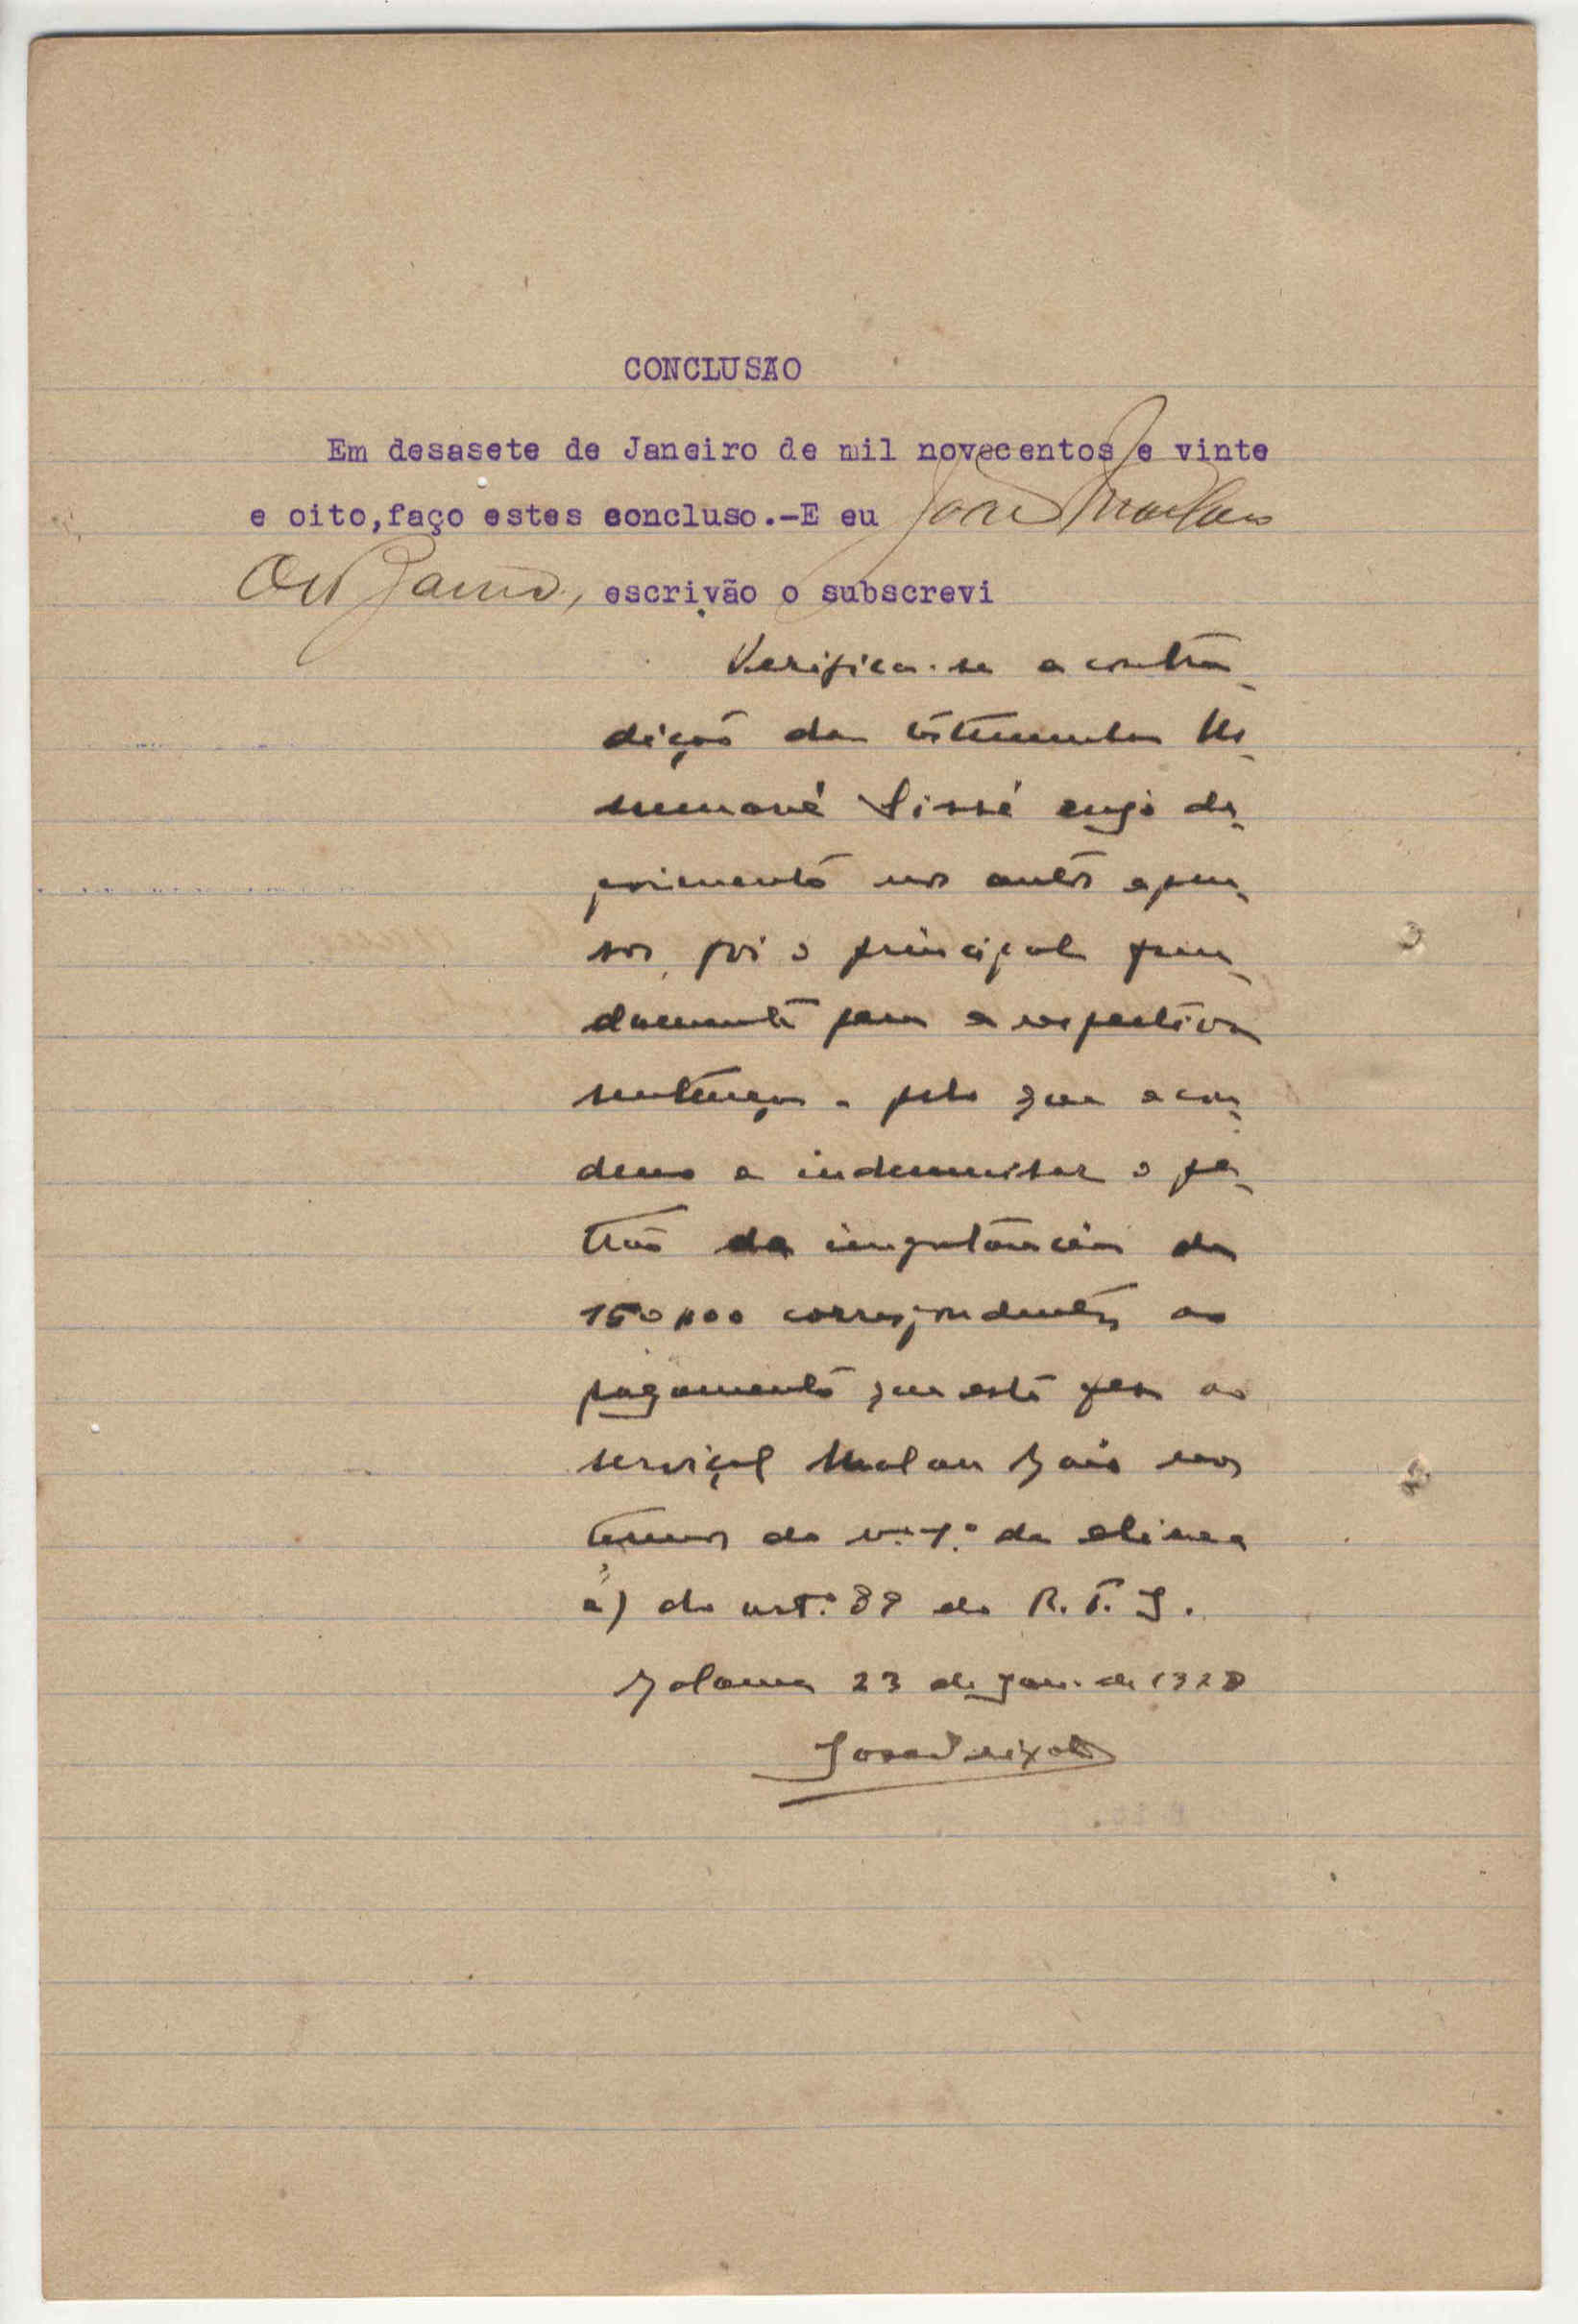 CONCLUSÃO
Em desasete de Janeiro de mil novecentos e vinte
e oito,faço estes concluso.-E eu
escrivão o subscrevi
Verifica-se a contra
dição da testemunha
Sissé cujo de
poimento nos autos apen
sos, foi o principal fun
damento para a respectiva
sentença - pelo que a con
deno a indemnisar o pa
trão da importancia de
150$00 correspondente ao
pagamento que este fez ao
serviçal Malan Baio nos
termos do n.º 1.º da alinea
a) do art.º 89 do R. T. I.
Bolama 23 de Jan. de 1928
José Peixoto